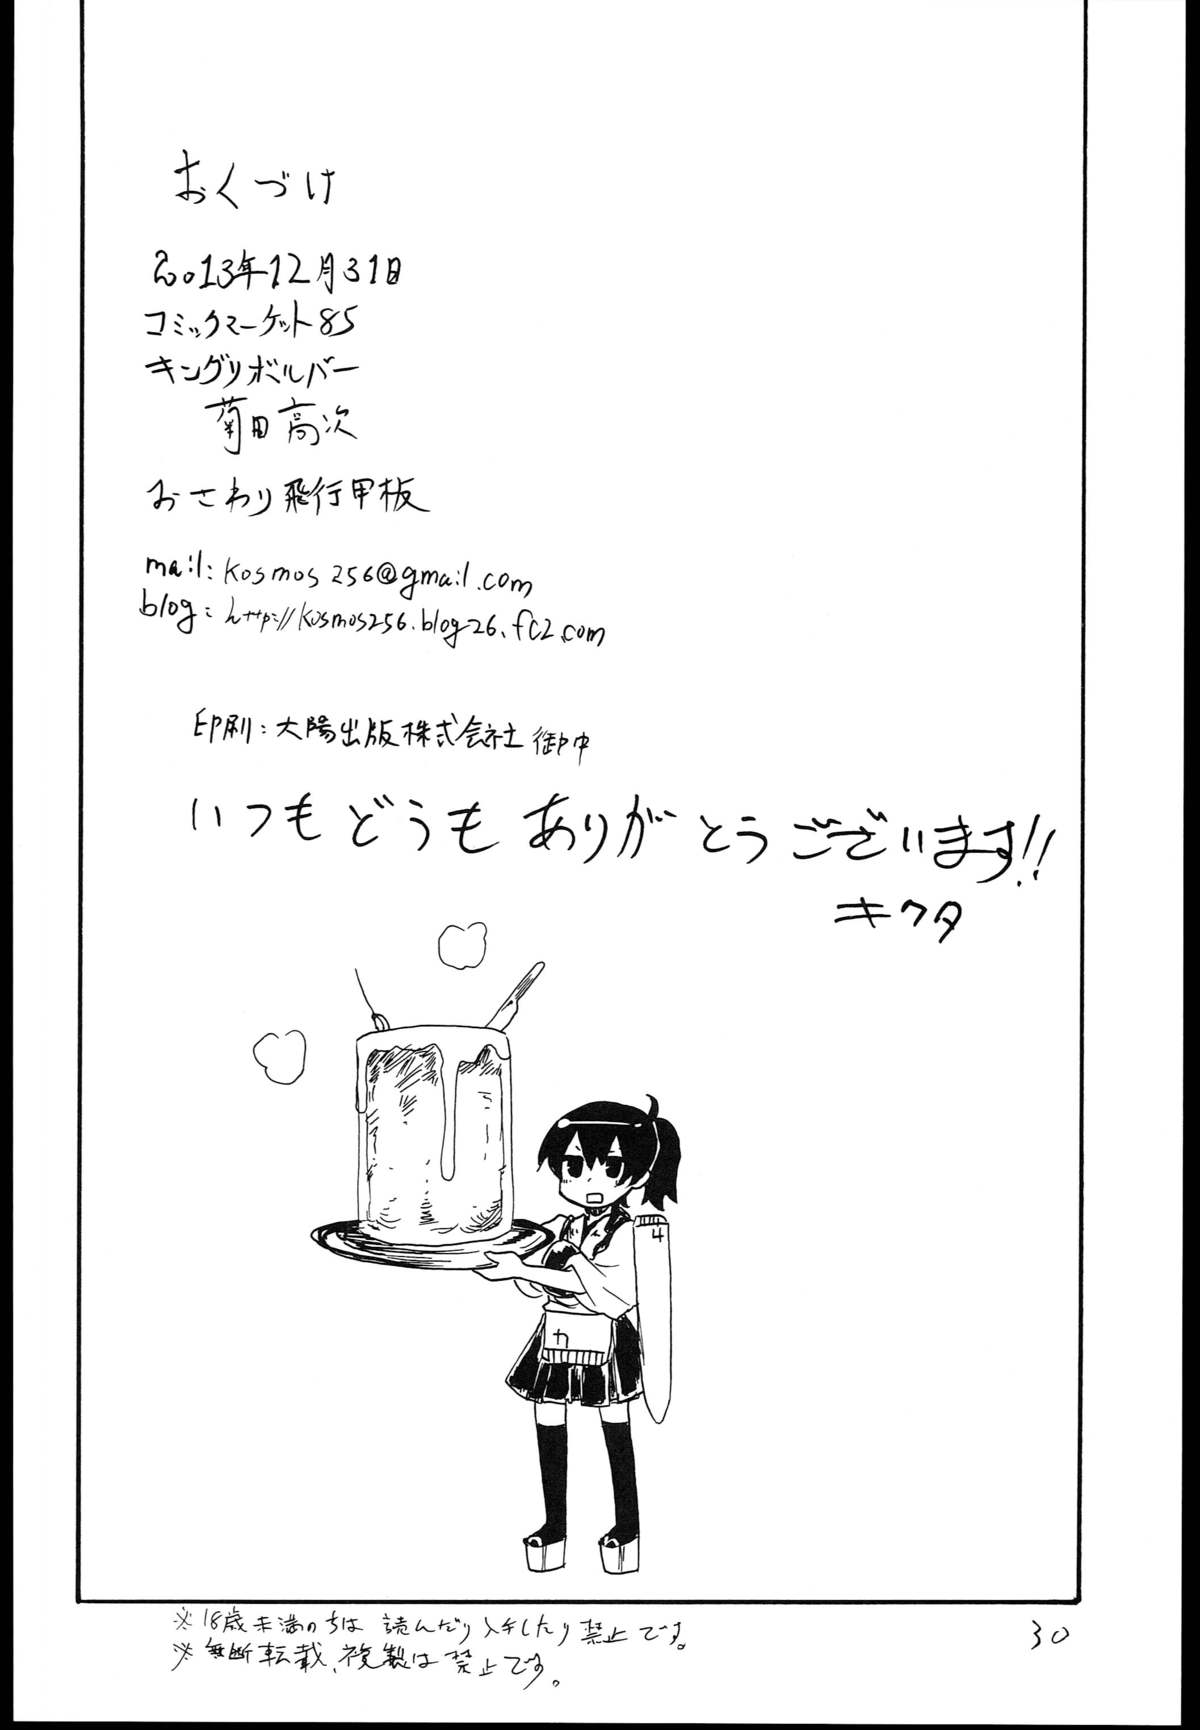 おくづけ
2013年12月31日
コミックマーケット85
キングリボルバー
菊田高次
おさわり飛行甲板
mail: kosmos256@gmail.com
blog: http://kosmos256.blog26.fc2.com
印刷: 大陽出版株式会社 御中
いつもどうもありがとうございます!!
キクタ
4
カ
※18歳未満のちは 読んだり入手したり禁止です。
※無断転載、複製は禁止です。
30